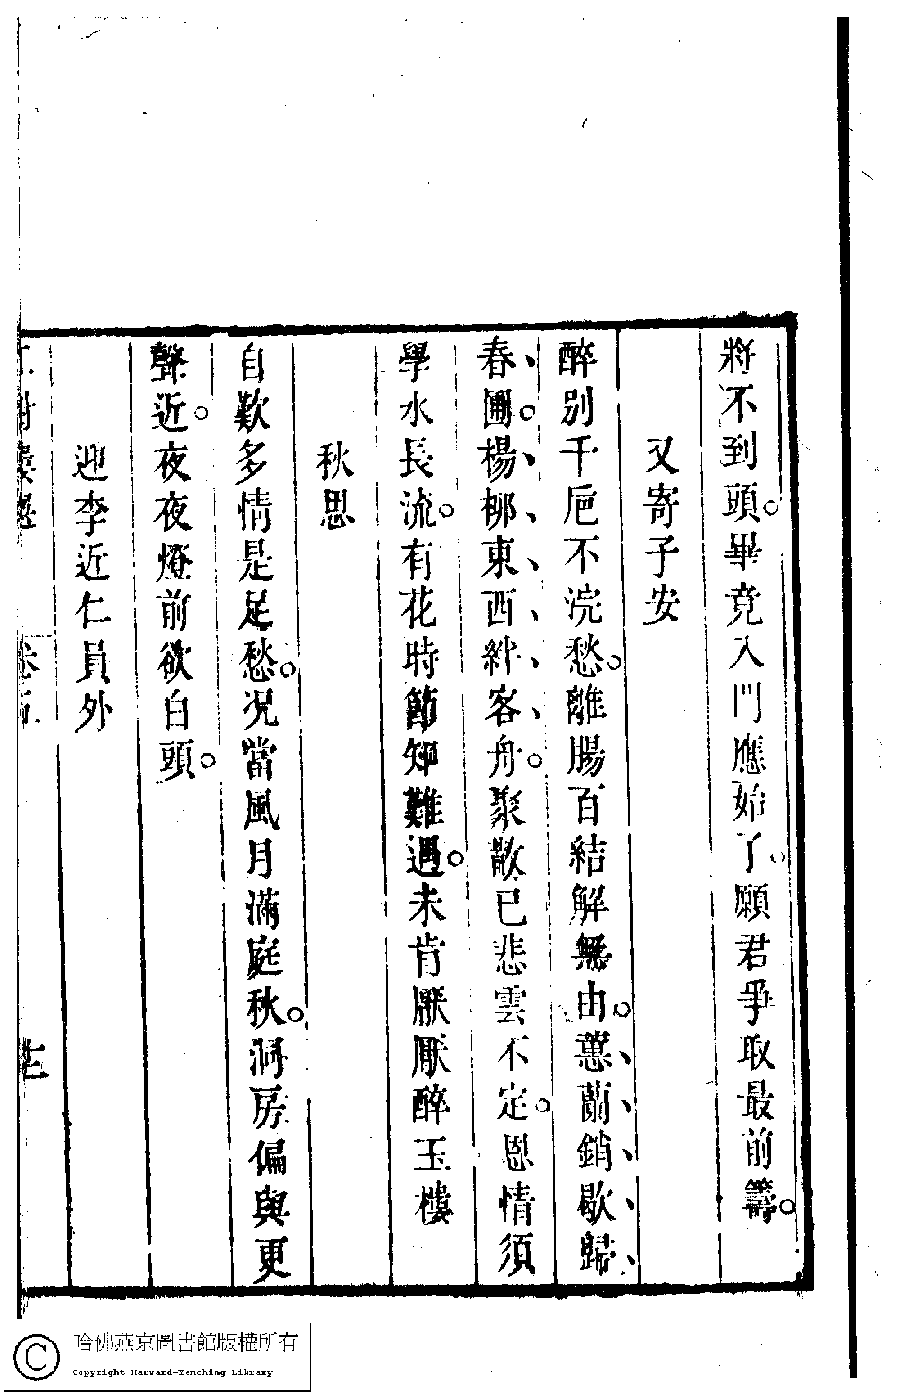 將不到頭。畢竟入門應始了。願君爭取最前籌。
又寄子安
醉别千巵不浣愁。離腸百結解無由。蕙蘭銷歇歸
春圃。楊栁東西絆客舟。聚散已悲雲不定。恩情須
學水長流。有花時節知難遇。未肯厭厭醉玉樓
秋思
自歎多情是足愁。况當風月滿庭秋。洞房偏與更
聲近。夜夜燈前欲白頭。
迎李近仁員外
哈佛燕京圖書館版權所有
Copyright Harvard-Yenching Library